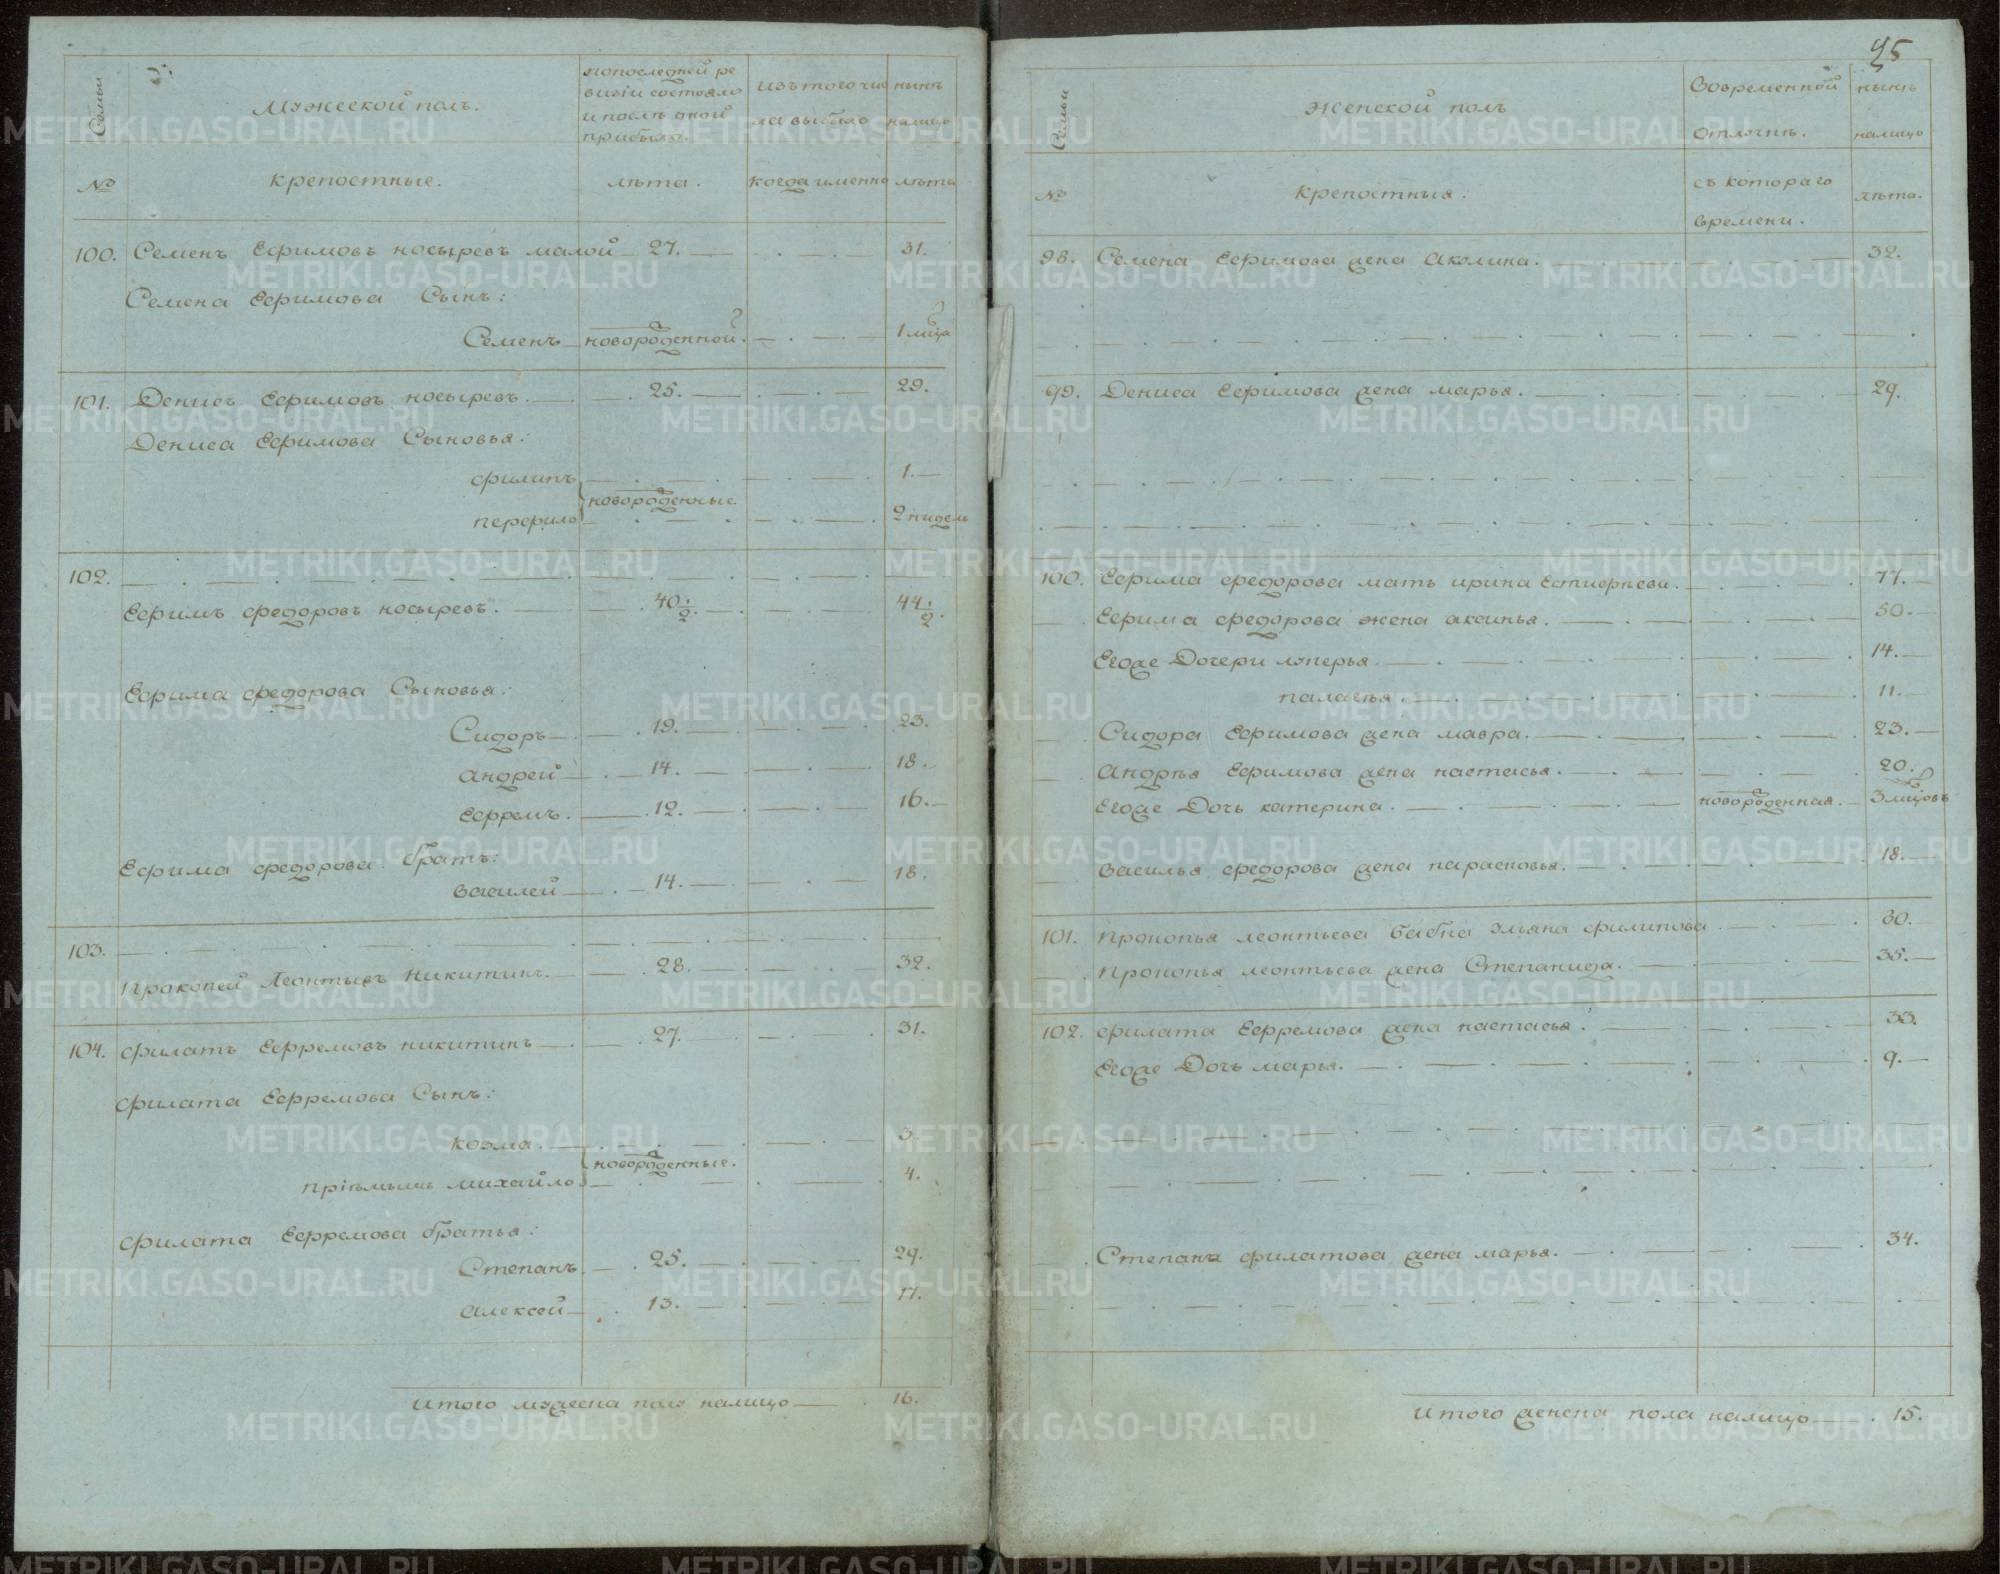 Семьи
Мужеской полъ.
попоследней ре
визiи состояло
и послѣ оной
прибыло.
изътого чис
ла выбыло
нынѣ
налицо
№
крепостные.
лѣта.
когда именно
лѣта
100. Семенъ Ефимовъ носыревъ малой 27. 31.
Семена Ефимова Сынъ:
Семенъ новорожденной. 1 мца
101. Денисъ Ефимовъ носыревъ. 25. 29.
Дениса Ефимова Сыновья:
филипъ 1.
новорожденные
перфило 2 нидел
102.
Ефимъ федоровъ носыревъ. 40 1/2. 44 1/2.
Ефима федорова Сыновья:
Сидоръ 19. 23.
андрей 14. 18.
Ефремъ. 12. 16.
Ефима федорова братъ:
василей 14. 18.
103.
прокопей Леонтьевъ никитинъ. 28. 32.
104. филатъ Ефремовъ никитинъ 27. 31.
филата Ефремова Сынъ:
козма. 3.
новорожденные.
прiемышъ михайло 4.
филата Ефремова братья:
Степанъ. 25. 29.
алексей 13. 17.
Итого мужеска полу налицо 16.
95
Семьи
Женской полъ
Вовременной
отлучкѣ.
нынѣ
налицо
№
крепостныя.
съ котораго
времени.
лѣта.
98. Семена Ефимова жена акулина. 32.
99. Дениса Ефимова жена марья. 29.
100. Ефима федорова мать ирина Естифеева. 77.
Ефима федорова жена аксинья. 50.
Егоже Дочери лукерья 14.
палагья. 11.
Сидора Ефимова жена мавра. 23.
андрѣя Ефимова жена настасья. 20.
Егоже Дочь катерина. новорожденная. 3 мцовъ
василья федорова жена парасковья. 18.
101. прокопья леонтьева бабка ульяна филипова 80.
прокопья леонтьева жена Степанида. 35.
102. филата Ефремова жена настасья. 33.
Егоже Дочь марья. 9.
Степана филатова жена марья. 34.
Итого женска пола налицо 15.
METRIKI.GASO-URAL.RU